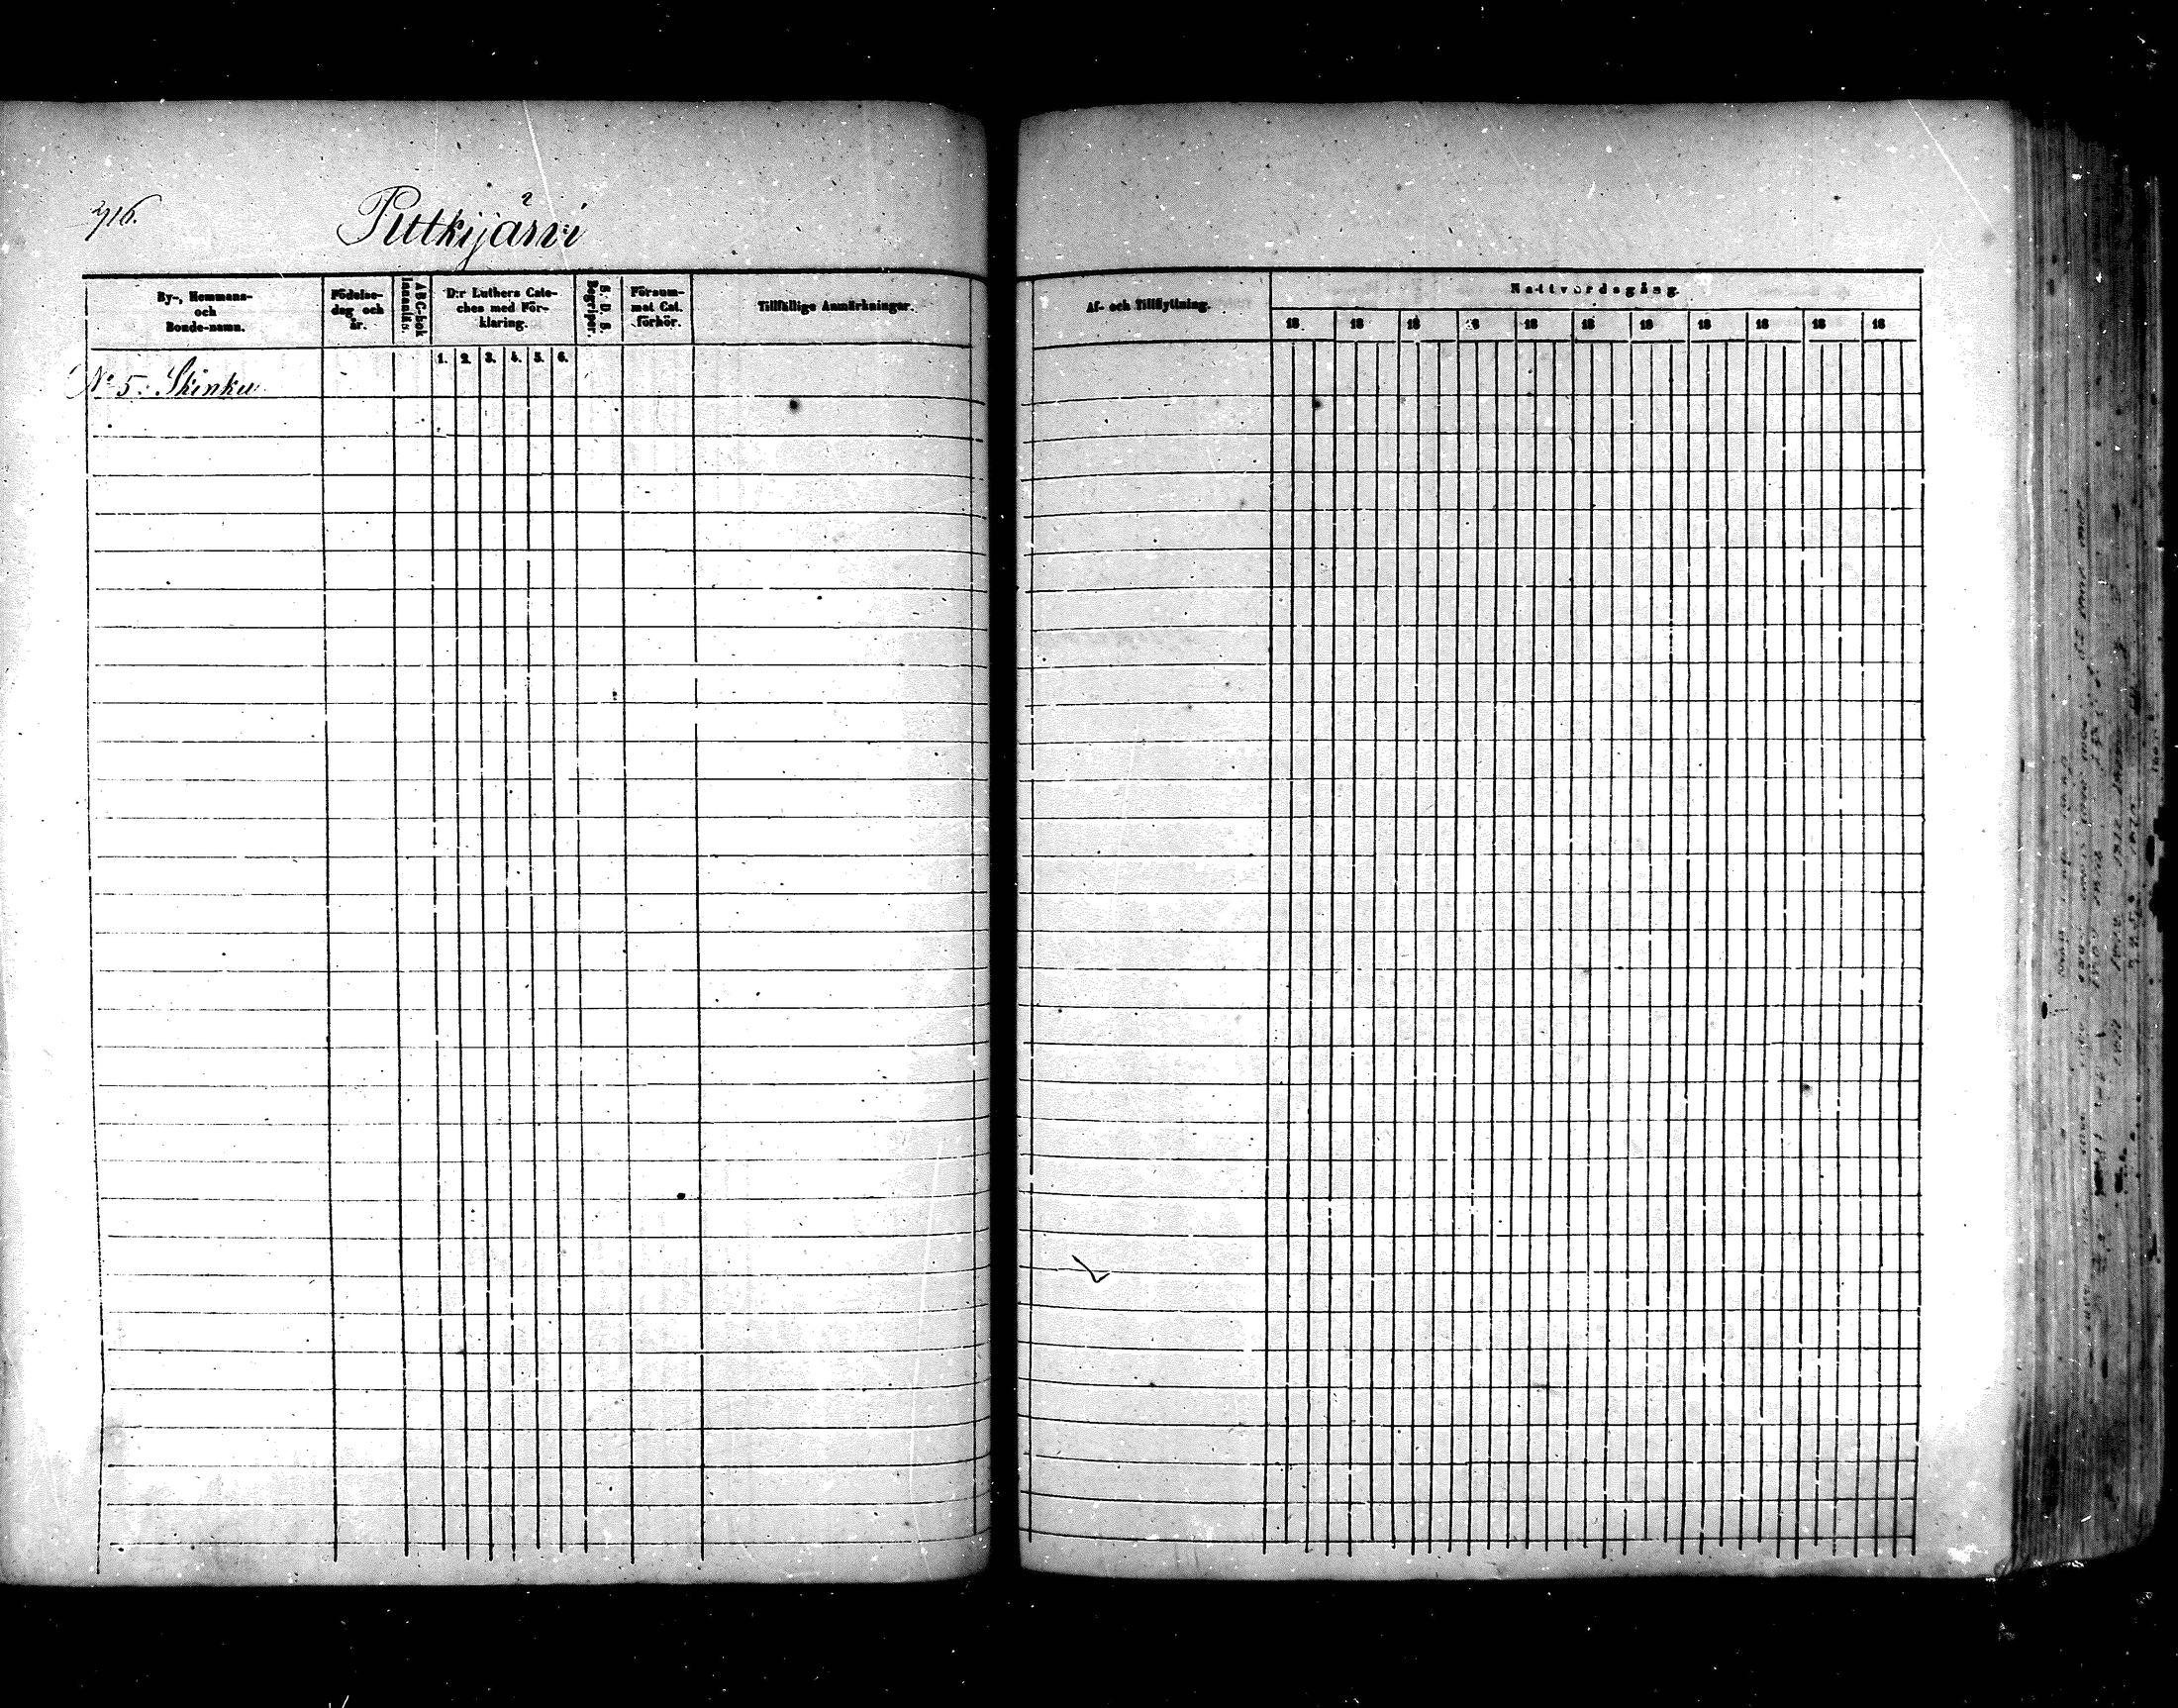 716.
Puttkijärvi
By-, Hemmans-
och
Bonde-namn.
Födelse-
dag och
år.
ABC-bok
Innanläs:
D:r Luthers Cate-
ches med För-
klaring.
1. 2. 3. 4. 5. 6.
S. D. B.
Begriper.
Försum-
mat Cat.
förhör.
Tillfällige Anmärkningar.
Af- och Tillflyttning.
Nattvardsgång.
18 18 18 18 18 18 18 18 18 18 18
No 5: Skinku